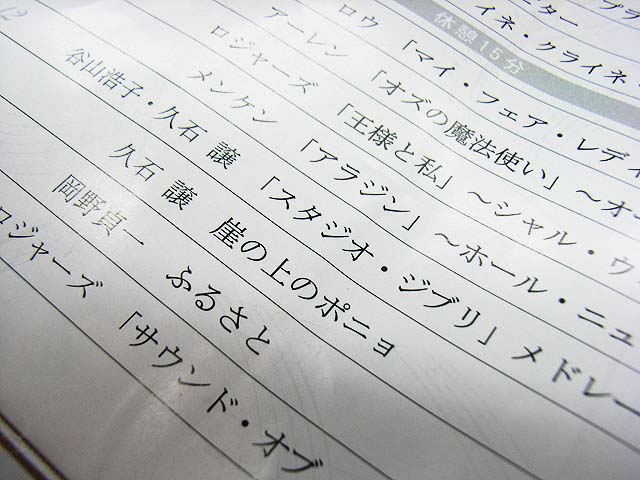 プラ
ター
イネ・クライネ・
休憩15分
ロウ 「マイ・フェア・レディ
アーレン 「オズの魔法使い」～オ
ロジャーズ 「王様と私」～シャル・ウ
メンケン 「アラジン」～ホール・ニュ
谷山浩子・久石 譲 「スタジオ・ジブリ」メドレー
久石 譲 崖の上のポニョ
岡野貞一 ふるさと
ロジャーズ 「サウンド・オブ